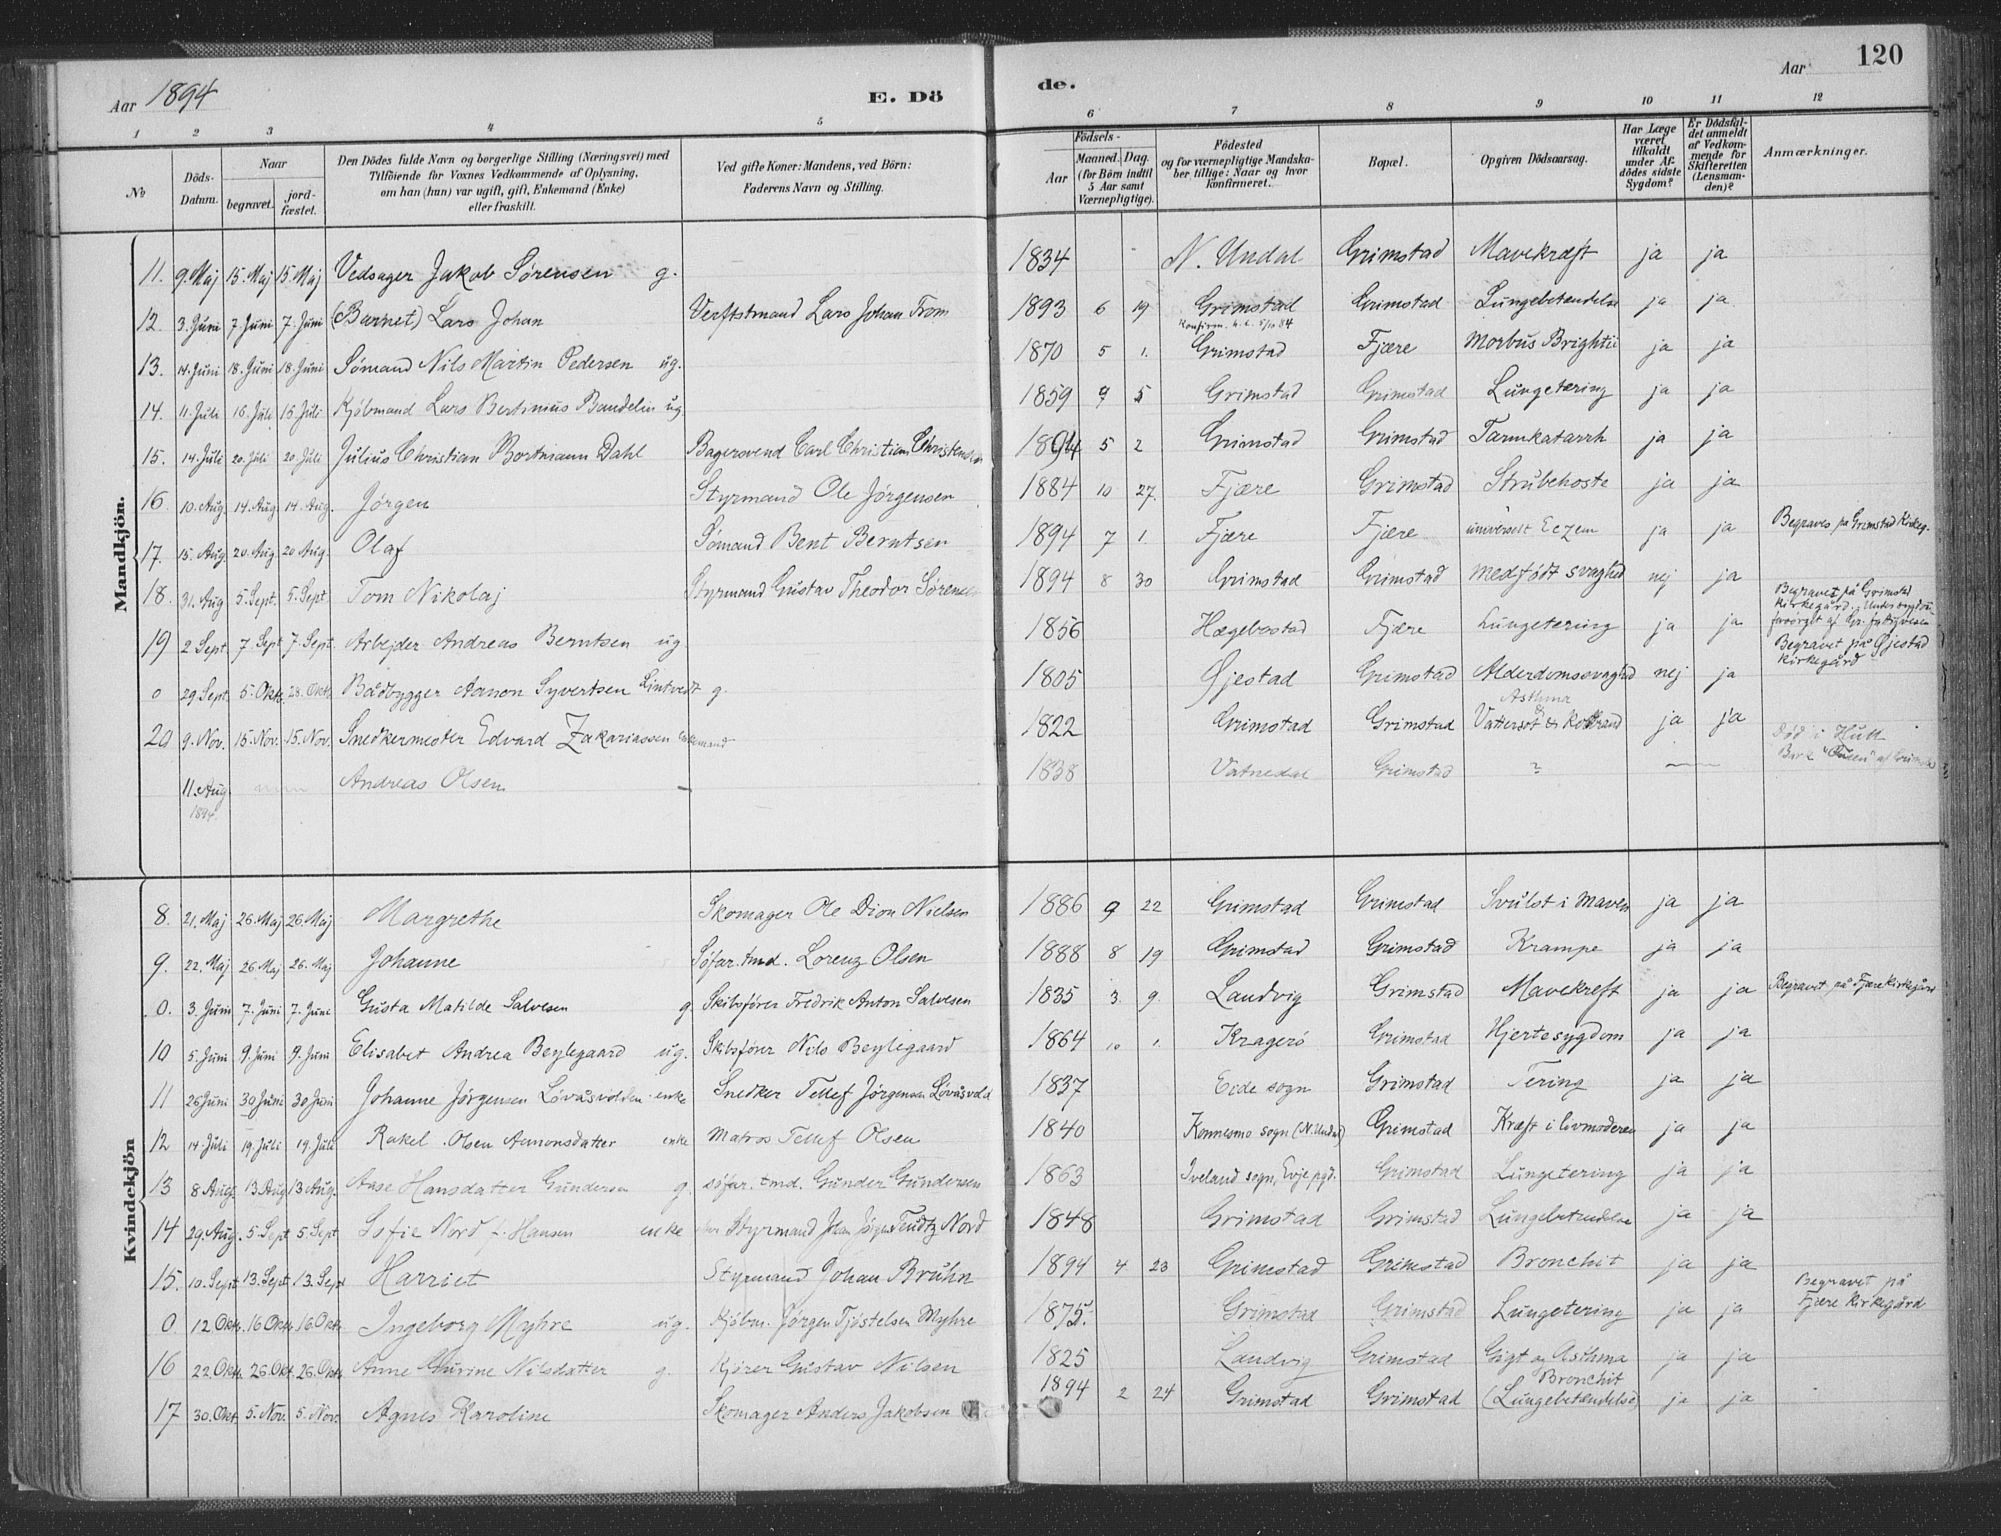 Aar 1894 E. Dö de. Aar 120
1 2 3 4 5 6 7 8 9 10 11 12
No
Döds-Datum.
Naar
begravet.
jord-fæstet.
Den Dödes fulde Navn og borgerlige Stilling (Næringsvei) med
Tilföiende for Voxnes Vedkommende af Oplysning,
om han (hun) var ugift, gift, Enkemand (Enke)
eller fraskilt.
Ved gifte Koner: Mandens, ved Börn:
Faderens Navn og Stilling.
Födsels-
Aar
Maaned. Dag.
(for Börn indtil
5 Aar samt
Værnepligtige).
Födested
og for værnepligtige Mandska-
ber tillige: Naar og hvor
konfirmeret.
Bopæl.
Opgiven Dödsaarsag.
Har Læge
været
tilkaldt
under Af-
dödes sidste
Sygdom?
Er Dödsfal-
det anmeldt
af Vedkom-
mende for
Skifteretten
(Lensman-
den)?
Anmærkninger.
Mandkjön.
11. 9. Maj 15. Maj 15. Maj Vedsager Jakob Sörensen g. 1834 N. Undal Grimstad Mavekræft ja ja
12. 3. Juni 7. Juni 7. Juni (Barnet) Lars Johan Verftsmand Lars Johan From 1893 6 19 Grimstad Grimstad Lungebetændelse ja ja
Konfirm.
13. 14. Juni 18. Juni 18. Juni Sömand Nils Martin Pedersen ug. 1870 5 1. Grimstad Fjære Morbus Brightii ja ja
14. 11. Juli 16. Juli 15. Juli Kjöbmand Lars Bertinius Bandelin ug. 1859 9 5 Grimstad Grimstad Lungetæring ja ja
15. 14. Juli 20. Juli 20. Juli Julius Christian Bortmann Dahl Bagersvend Carl Christian Christensen 1894 5 2 Grimstad Grimstad Tarmkatarrh ja ja
16 10. Aug. 14. Aug. 14. Aug. Jörgen Styrmand Ole Jörgensen 1884 10 27. Fjære Grimstad Strubehoste ja ja
17. 15. Aug. 20. Aug. 20 Aug. Olaf Sömand Bent Berntsen 1894 7 1. Fjære Fjære universelt Eczem ja ja Begraves på Grimstad Kirkeg.
18. 31. Aug 5. Sept. 5. Sept Tom Nikolaj Styrmand Gustav Theodor Sörensen 1894 8 30 Grimstad Grimstad medfödt svaghed nej ja
19 2 Sept. 7. Sept 7. Sept. Arbejder Andreas Berntsen ug. 1856 Hægebostad Fjære Lungetæring ja ja Begravet på Grimstad
Kirkegård.
0 29. Sept. 5. Okt. 28. Okt. Bådbygger Aanon Syvertsen Lintvedt g. 1805 Öjestad Grimstad Alderdomssvaghed nej ja Begravet på Öjestad
Kirkegård
20 9. Nov. 15. Nov. 15. Nov. Snedkermester Edvard Zakariassen enkemand 1822 Grimstad Grimstad Asthma
Vattersot & Koldbrand ja ja
11. Aug
1894. Andreas Olsen 1838 Vatnedal Grimstad ? Död i Hull
Kvindekjön
8. 21. Maj 26. Maj 26. Maj Margrethe Skomager Ole Dion Nielsen 1886 9 22 Grimstad Grimstad Svulst i Maven ja ja
9. 22. Maj 26 Maj 26. Maj Johanne Söfar. tmd. Lorenz Olsen 1888 8 19 Grimstad Grimstad Krampe ja ja
0. 3. Juni 7. Juni 7. Juni Gusta Matilde Salvesen g. Skibsförer Fredrik Anton Salvesen 1835 3. 9. Landvig Grimstad Mavekreft ja ja Begravet på Fjære Kirkegård
10 5. Juni 9. Juni 9. Juni Elisabet Andrea Beylegaard ug. Skibsförer Nils Beylegaard 1864 10 1. Kragerö Grimstad Hjertesygdom ja ja
11 26 Juni 30 Juni 30 Juni Johanne Jörgensen Lövåsvolden enke Snedker Tellef Jörgensen Lövåsvold 1837 Eide sogn Grimstad Tering ja ja
12 14 Juli 19. Juli 19. Juli Rakel Olsen Aanonsdatter enke Matros Tellef Olsen 1840 Konnesmo sogn (N. Undal) Grimstad Kræft i Livmoderen ja ja
13 8 Aug. 13 Aug 13 Aug. Aase Hansdatter Gundersen g. söfar. tmd. Gunder Gundersen 1863 Iveland sogn, Evje pgd. Grimstad Lungetering ja ja
14 29. Aug. 5. Sept 5. Sept. Sofie Nord f. Hansen enke Styrmand Jörgen Nord 1848 Grimstad Grimstad Lungebetændelse ja ja
15. 10. Sept. 13. Sept. 13. Sept Harriet Styrmand Johan Bruhn 1894 4 23 Grimstad Grimstad Bronchit ja ja
0 12 Okt. 16 Okt. 16. Okt. Ingeborg Myhre ug. Kjöbm. Jörgen Tjöstelsen Myhre 1875. Grimstad Grimstad Lungetering ja ja Begravet på
Fjære Kirkegård
16 22. Okt. 26. Okt. 26. Okt. Anne Gurine Nilsdatter g. Kjörer Gustav Nilsen 1825 Landvig Grimstad Gigt og Asthma ja ja
17 30. Okt. 5. Nov. 5. Nov. Agnes Karoline Skomager Anders Jakobsen 1894 2 24 Grimstad Grimstad Bronchit
(Lungebetændelse) ja ja